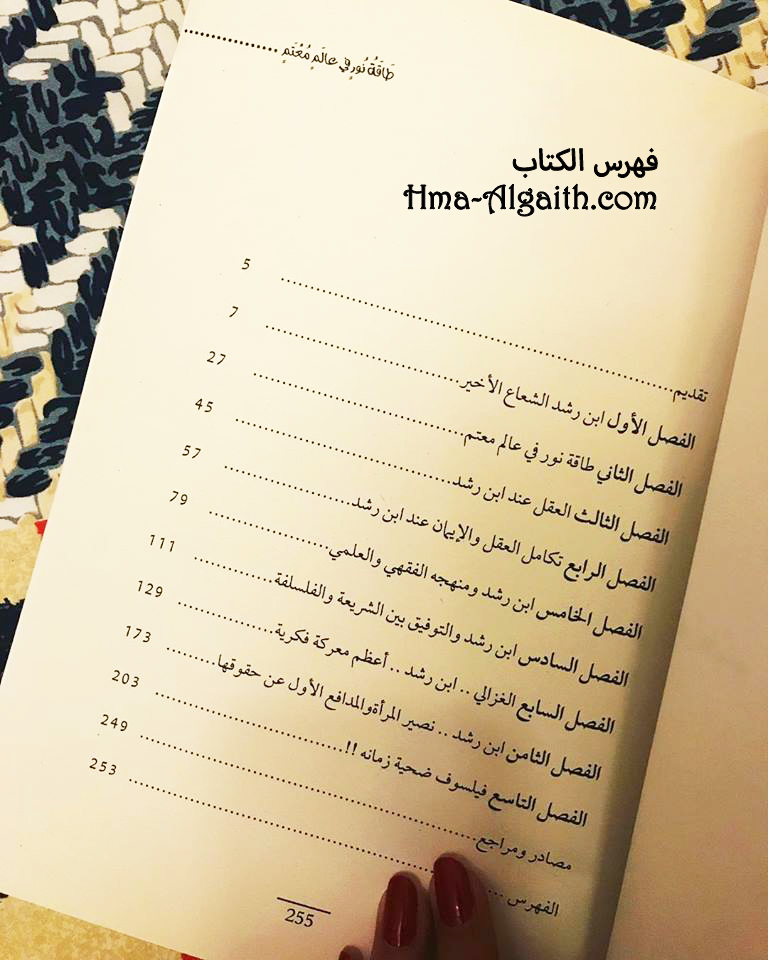 طَاقَةُ نُورٍ فِي عَالَمٍ مُعْتَمٍ
فهرس الكتاب
Hma-Algaith.com
تقديم 5
الفصل الأول ابن رشد الشعاع الأخير 7
الفصل الثاني طاقة نور في عالم معتم 27
الفصل الثالث العقل عند ابن رشد 45
الفصل الرابع تكامل العقل والإيمان عند ابن رشد 57
الفصل الخامس ابن رشد ومنهجه الفقهي والعلمي 79
الفصل السادس ابن رشد والتوفيق بين الشريعة والفلسلفة 111
الفصل السابع الغزالي .. ابن رشد .. أعظم معركة فكرية 129
الفصل الثامن ابن رشد .. نصير المرأةوالمدافع الأول عن حقوقها 173
الفصل التاسع فيلسوف ضحية زمانه !! 203
مصادر ومراجع 249
الفهرس 253
255